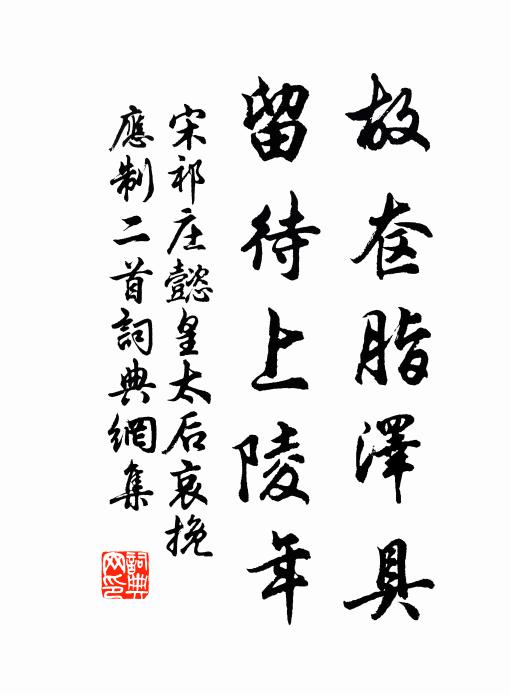 故奁脂澤具
留待上陵年
宋祁庄懿皇太后哀挽
應制二首詞典網集
詞典
网印